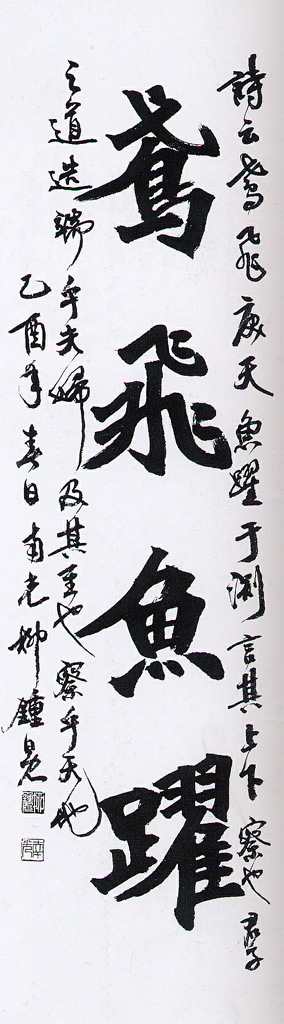 詩云鳶飛戾天魚躍于淵言其上下察也君子
鳶飛魚躍
之道造端乎夫婦及其至也察乎天地
乙酉年春日南光柳鍾